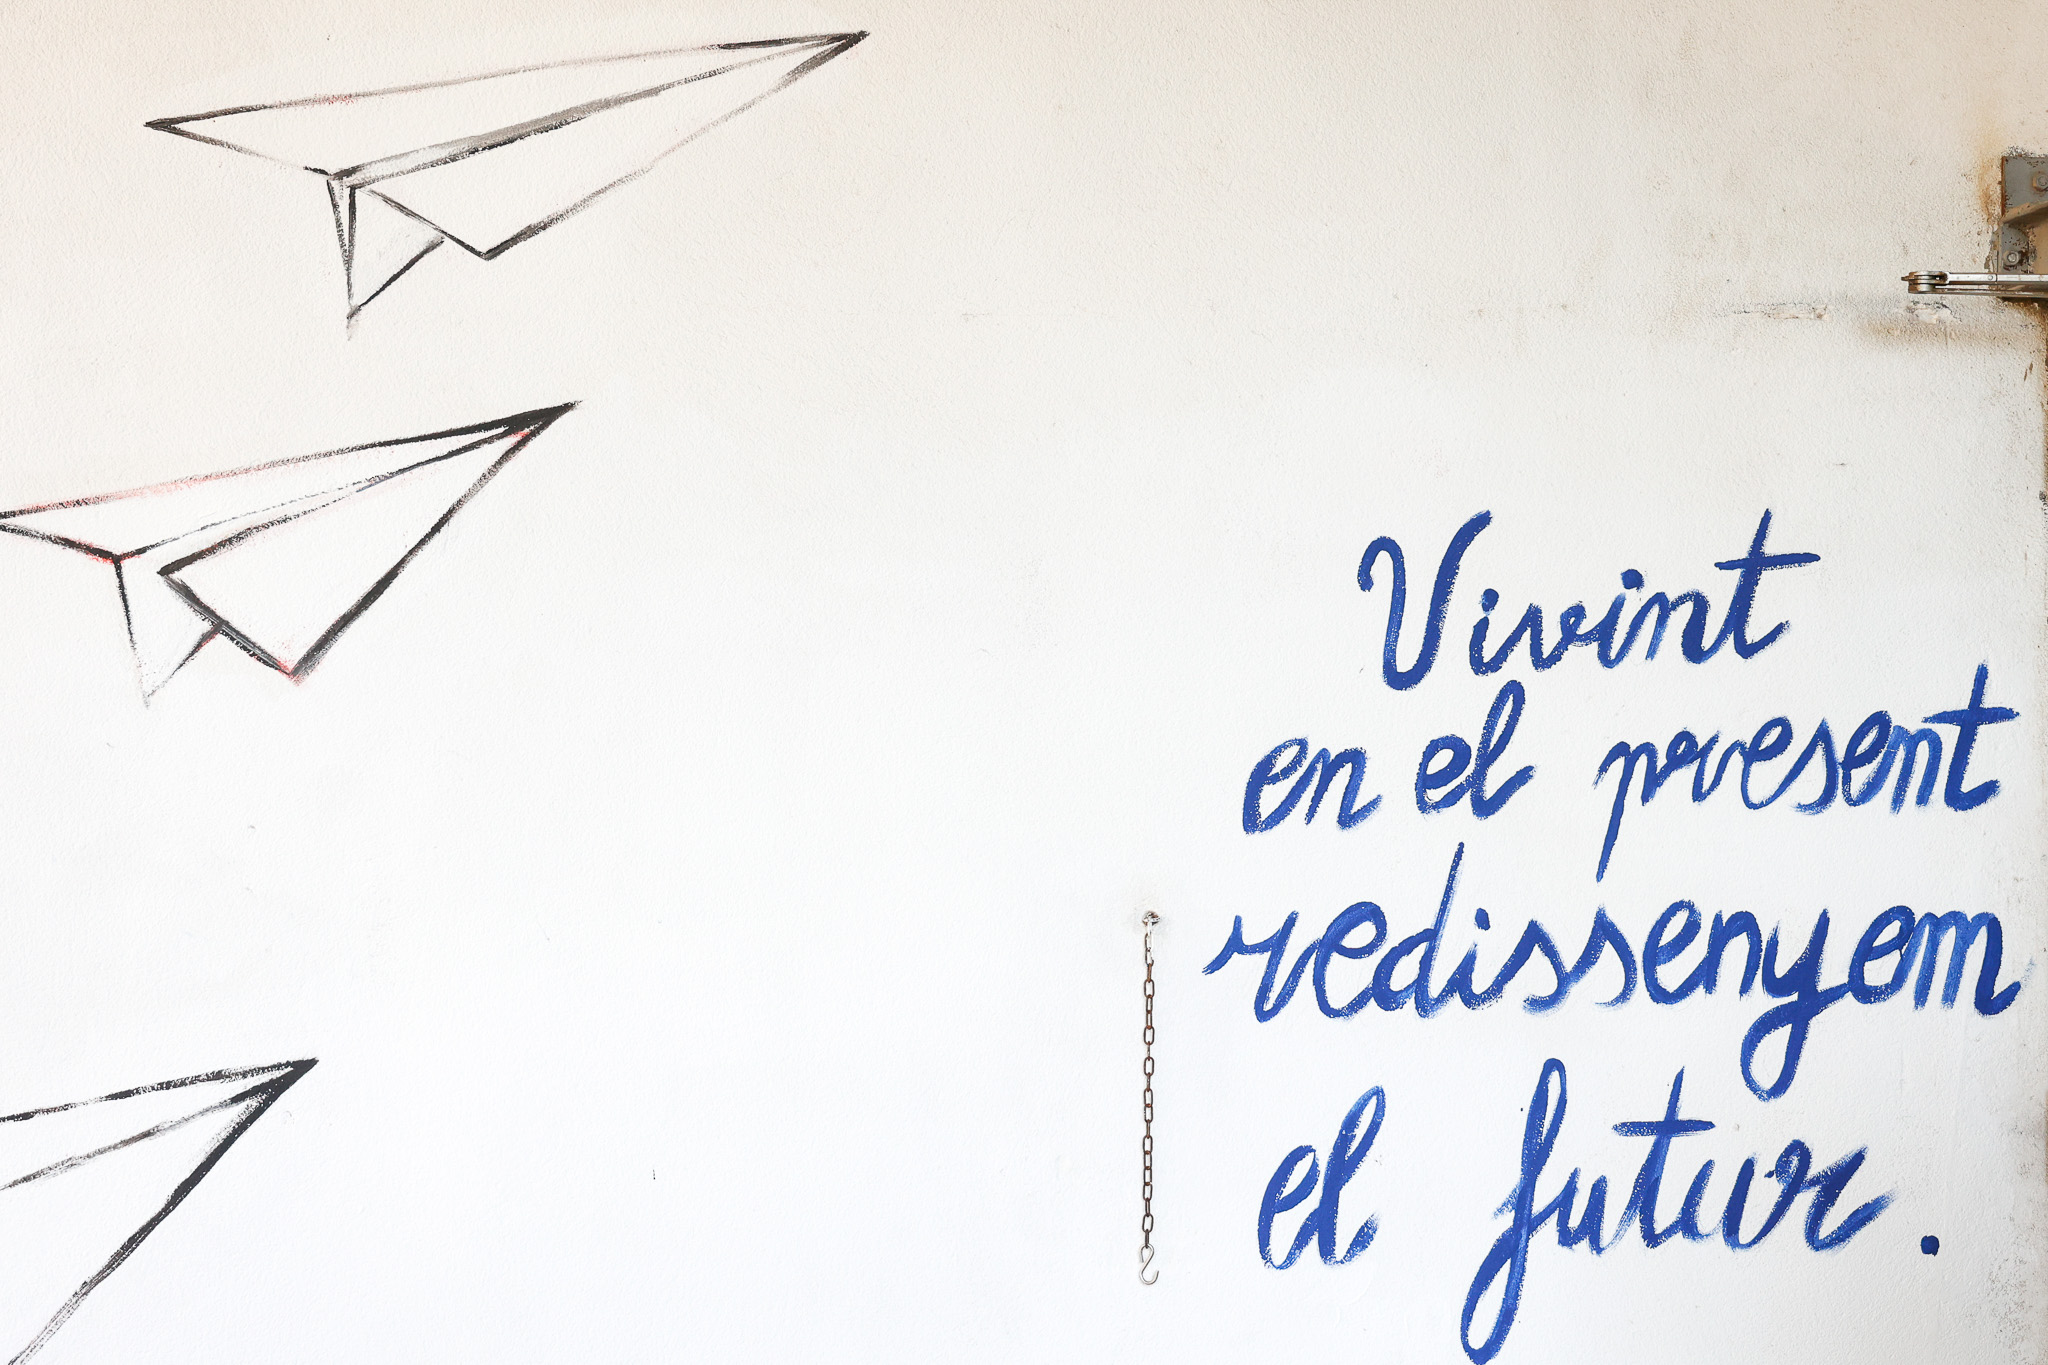 Vivint
en el present
redissenyem
el futur.